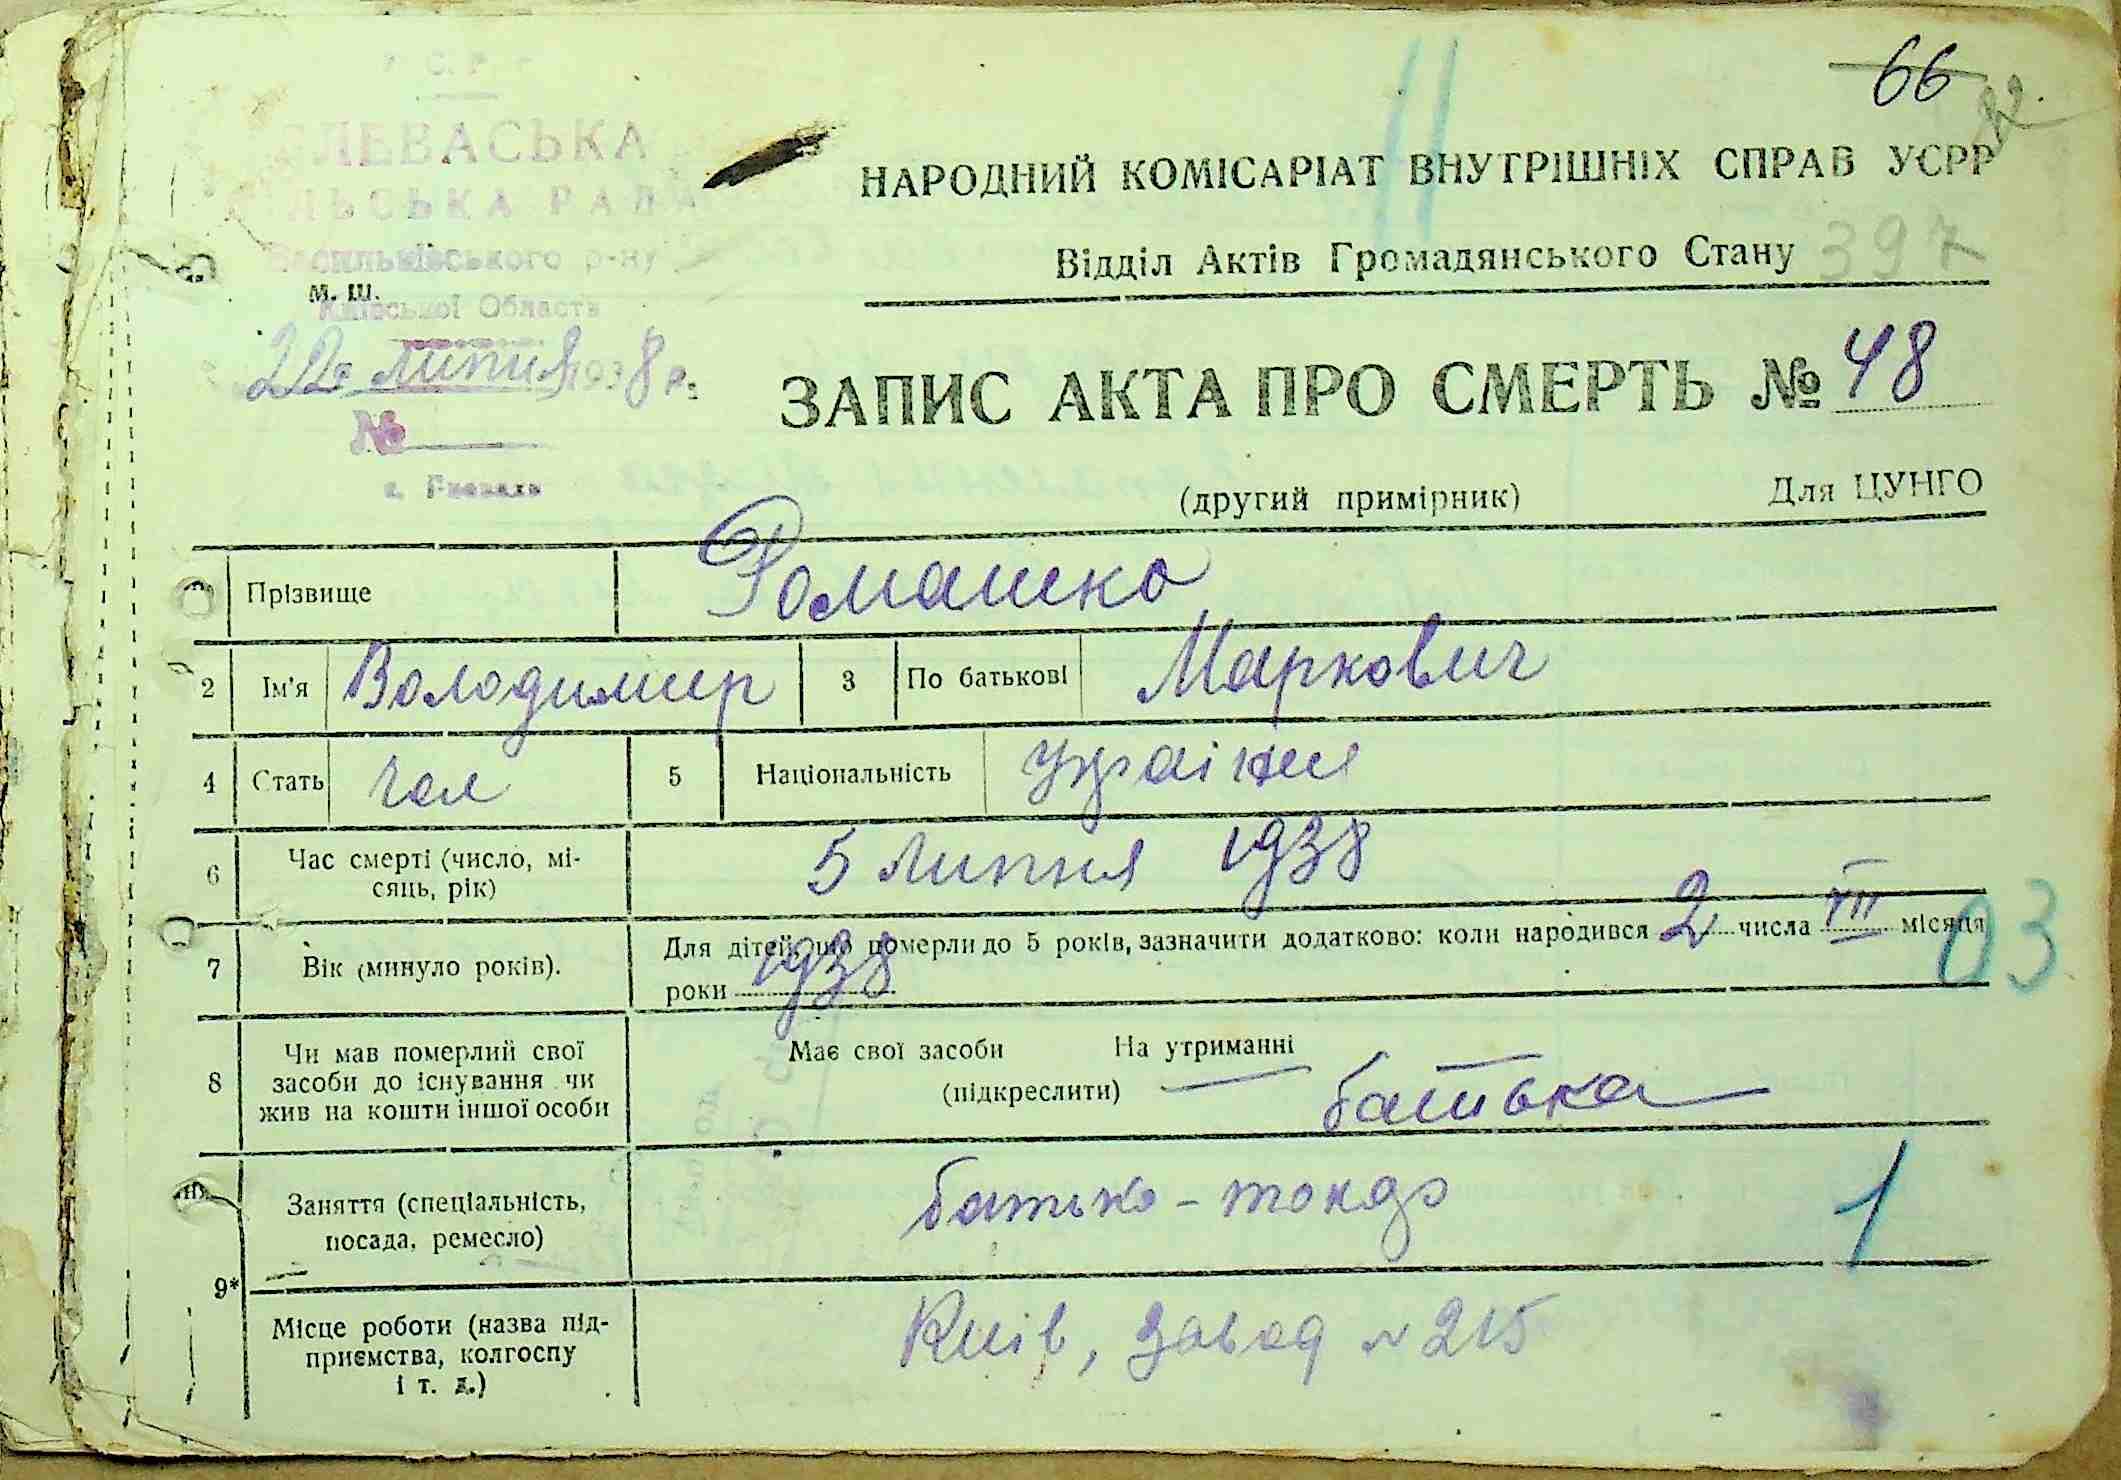 66
22.
НАРОДНИЙ КОМІСАРІАТ ВНУТРІШНІХ СПРАВ УСРР
Відділ Актів Громадянського Стану 397
ЛЕВАСЬКА
ЛЬСЬКА РАДА
Васильківського р-ну
м. ш.
Київської Області
22 липня 1938 р.
№
ЗАПИС АКТА ПРО СМЕРТЬ № 48
(другий примірник) Для ЦУНГО
Прізвище Ромашко
2 Ім'я Володимир 3 По батькові Маркович
4 Стать чол 5 Національність
6 Час смерті (число, мі-
сяць, рік) 5 липня 1938
7 Вік (минуло років). Для дітей, що померли до 5 років, зазначити додатково: коли народився 2 числа VII місяця
роки 1938
03
8 Чи мав померлий свої
засоби до існування чи
жив на кошти іншої особи
Має свої засоби На утриманні
(підкреслити) батька
9* Заняття (спеціальність,
посада, ремесло) батько -
1
Місце роботи (назва під-
приємства, колгоспу
і т. д.) Київ, завод № 215